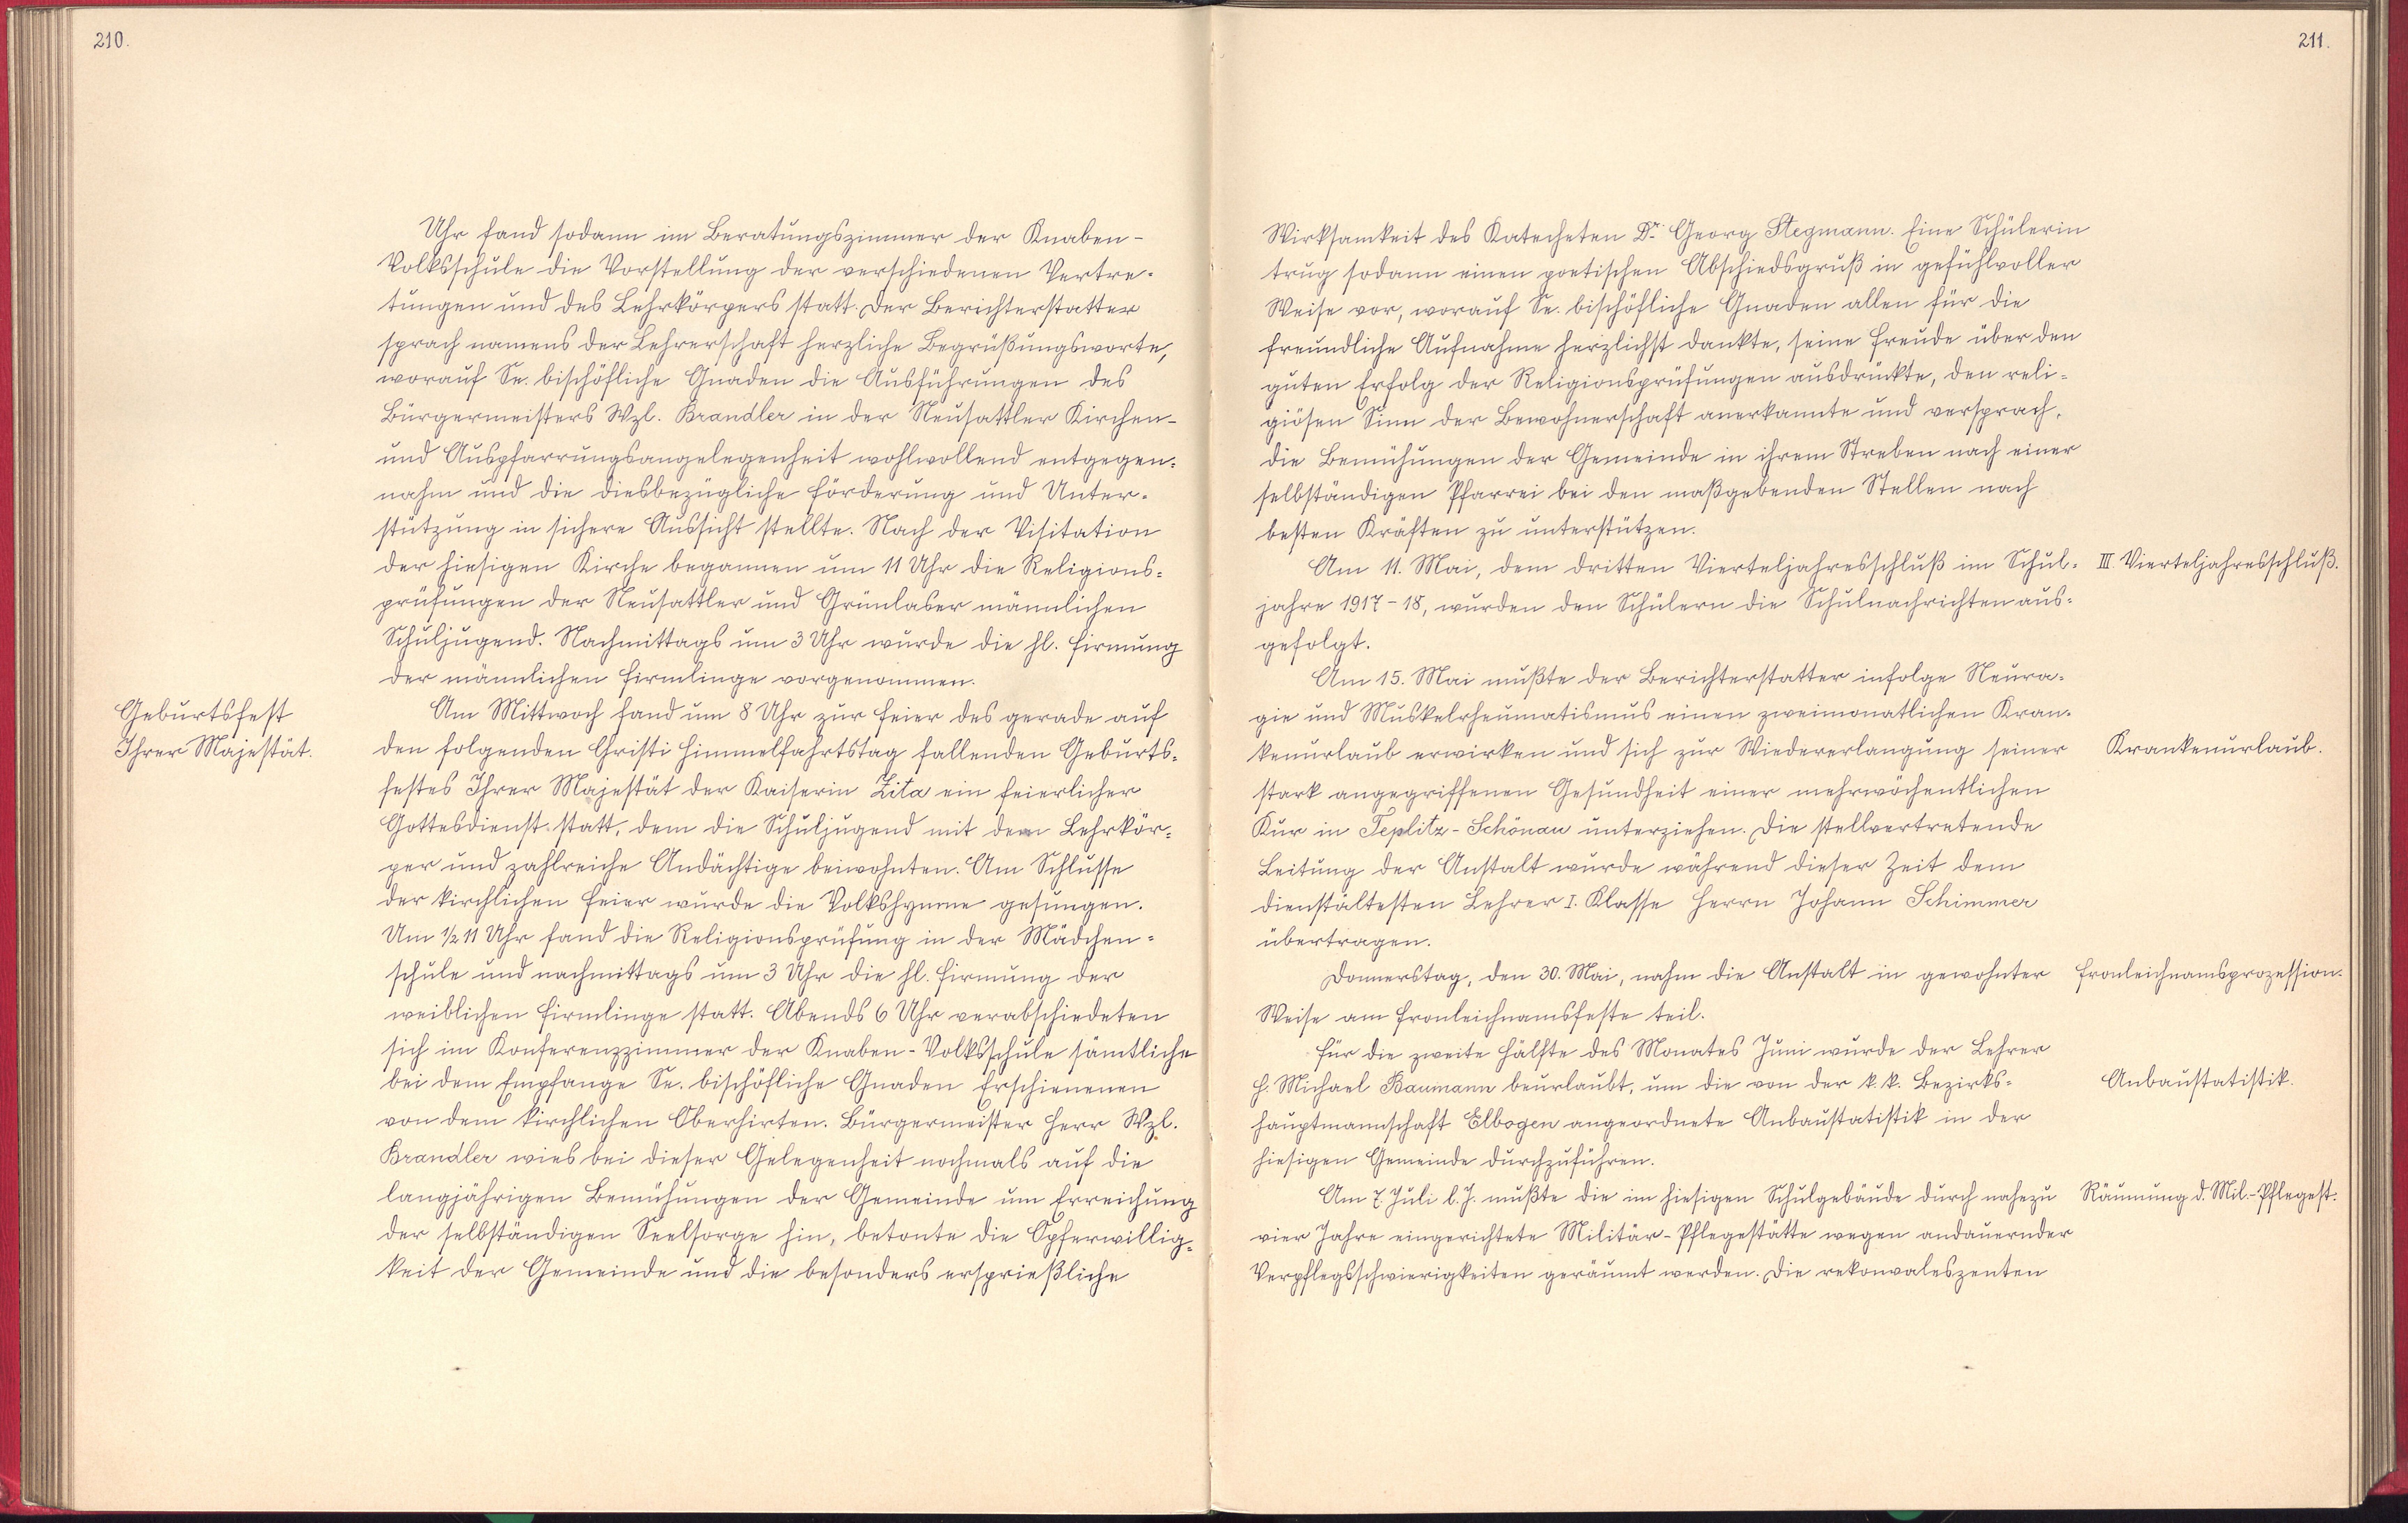 210.
Uhr fand sodann im Beratungszimmer der Knaben-
Volksschule die Vorstellung der verschiedenen Vertre-
tungen und des Lehrkörpers statt. Der Berichterstatter
sprach namens der Lehrerschaft herzliche Begrüßungsworte,
worauf Se. bischöfliche Gnaden die Ausführungen des
Bürgermeisters Wzl. Brandler in der Neusattler Kirchen-
und Auspfarrungsangelegenheit wohlwollend entgegen-
nahm und die diesbezügliche Förderung und Unter-
stützung in sichere Aussicht stellte. Nach der Visitation
der hiesigen Kirche begannen um 11 Uhr die Religions-
prüfungen der Neusattler und Grünlaser männlichen
Schuljugend. Nachmittags um 3 Uhr wurde die hl. Firmung
der männlichen Firmlinge vorgenommen.
Geburtsfest
Ihrer Majestät.
Am Mittwoch fand um 8 Uhr zur Feier des gerade auf
den folgenden Christi Himmelfahrtstag fallenden Geburts-
festes Ihrer Majestät der Kaiserin Zita ein feierlicher
Gottesdienst statt, dem die Schuljugend mit dem Lehrkör-
per und zahlreiche Andächtige beiwohnten. Am Schlusse
der kirchlichen Feier wurde die Volkshymne gesungen.
Um ½ 11 Uhr fand die Religionsprüfung in der Mädchen-
schule und nachmittags um 3 Uhr die hl. Firmung der
weiblichen Firmlinge statt. Abends 6 Uhr verabschiedeten
sich im Konferenzzimmer der Knaben-Volksschule sämtliche
bei dem Empfange Se. bischöfliche Gnaden Erschienenen
von dem kirchlichen Oberhirten. Bürgermeister Herr Wzl.
Brandler wies bei dieser Gelegenheit nochmals auf die
langjährigen Bemühungen der Gemeinde um Erreichung
der selbständigen Seelsorge hin, betonte die Opferwillig-
keit der Gemeinde und die besonders ersprießliche
211.
Wirksamkeit des Katecheten Dr. Georg Stegmann. Eine Schülerin
trug sodann einen poetischen Abschiedsgruß in gefühlvoller
Weise vor, worauf Se. bischöfliche Gnaden allen für die
freundliche Aufnahme herzlichst dankte, seine Freude über den
guten Erfolg der Religionsprüfungen ausdrückte, den reli-
giösen Sinn der Bewohnerschaft anerkannte und versprach,
die Bemühungen der Gemeinde in ihrem Streben nach einer
selbständigen Pfarrei bei den maßgebenden Stellen nach
besten Kräften zu unterstützen.
Am 11. Mai, dem dritten Vierteljahresschluß im Schul-
III. Vierteljahresschluß.
jahre 1917-18, wurden den Schülern die Schulnachrichten aus-
gefolgt.
Am 15. Mai mußte der Berichterstatter infolge Neura-
gie und Muskelrheumatismus einen zweimonatlichen Kran-
kenurlaub erwirken und sich zur Wiedererlangung seiner
Krankenurlaub.
stark angegriffenen Gesundheit einer mehrwöchentlichen
Kur in Teplitz-Schönau unterziehen. Die stellvertretende
Leitung der Anstalt wurde während dieser Zeit dem
dienstältesten Lehrer I. Klasse Herrn Johann Schimmer
übertragen.
Donnerstag, den 30. Mai, nahm die Anstalt in gewohnter
Fronleichnamsprozession.
Weise am Fronleichnamsfeste teil.
Für die zweite Hälfte des Monates Juni wurde der Lehrer
H. Michael Baumann beurlaubt, um die von der k. k. Bezirks-
Anbaustatistik.
hauptmannschaft Elbogen angeordnete Anbaustatistik in der
hiesigen Gemeinde durchzuführen.
Am 7. Juli l. J. mußte die im hiesigen Schulgebäude durch nahezu
Räumung d. Mil.-Pflegest.
vier Jahre eingerichtete Militär-Pflegestätte wegen andauernder
Verpflegsschwierigkeiten geräumt werden. Die rekonvaleszenten